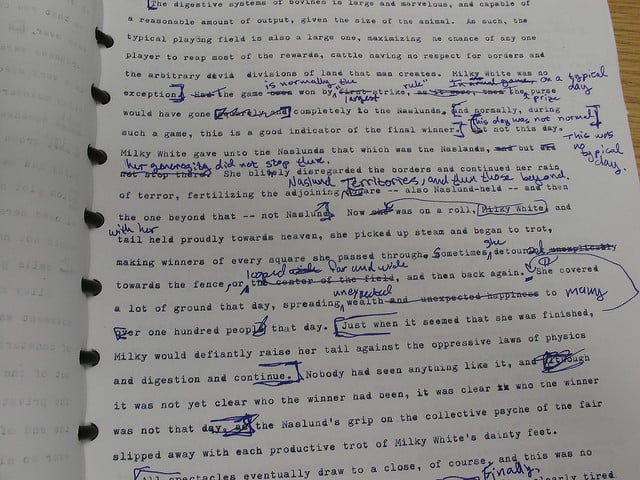 The digestive systems of bovines is large and marvelous, and capable of
a reasonable amount of output, given the size of the animal. As such, the
typical playing field is also a large one, maximizing he chance of any one
player to reap most of the rewards, cattle having no respect for borders and
the arbitrary divisions of land that man creates. Milky White was no
is normally the rule" In on a typical day
exception. Had the game been won by "first-strike, the purse
largest prize
would have gone completely to the Naslunds. And normally, during
this day was not normal
such a game, this is a good indicator of the final winner. not this day.
This was no typical day.
Milky White gave unto the Naslunds that which was the Naslunds, and but
her generosity did not stop there.
not stop there. She blithely disregarded the borders and continued her rain
Naslund Territories, and then those beyond.
of terror, fertilizing the adjoining square -- also Naslund-held -- and then
the one beyond that -- not Naslund. Now she was on a roll, Milky White, and
with her
tail held proudly towards heaven, she picked up steam and began to trot,
she
making winners of every square she passed through. Sometimes detoured unexpectedly
looped far and wide
towards the fence or the center of the field, and then back again. She covered
unexpected
a lot of ground that day, spreading wealth and unexpected happiness to many
over one hundred people that day. Just when it seemed that she was finished,
Milky would defiantly raise her tail against the oppressive laws of physics
and digestion and continue. Nobody had seen anything like it, and although
it was not yet clear who the winner had been, it was clear who the winner
was not that day, as the Naslund's grip on the collective psyche of the fair
slipped away with each productive trot of Milky White's dainty feet.
All spectacles eventually draw to a close, of course, and this was no
Finally,
clearly tired